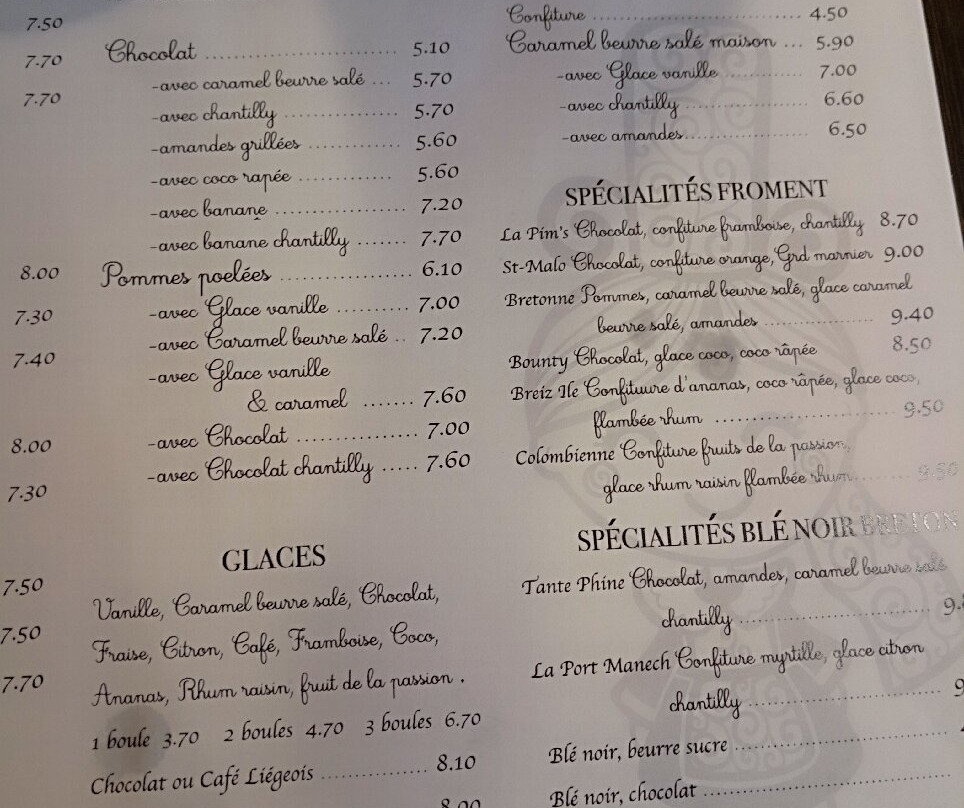 7.50
7.70
7.70
8.00
7.30
7.40
8.00
7.30
7.50
7.50
7.70
Chocolat ........................ 5.10
-avec caramel beurre salé ... 5.70
-avec chantilly ................ 5.70
-amandes grillées ............ 5.60
-avec coco rapée ............. 5.60
-avec banane .................. 7.20
-avec banane chantilly ....... 7.70
Pommes poelées ................. 6.10
-avec Glace vanille .......... 7.00
-avec Caramel beurre salé .. 7.20
-avec Glace vanille
& caramel ....... 7.60
-avec Chocolat ................ 7.00
-avec Chocolat chantilly ..... 7.60
GLACES
Vanille, Caramel beurre salé, Chocolat,
Fraise, Citron, Café, Framboise, Coco,
Ananas, Rhum raisin, fruit de la passion .
1 boule 3.70 2 boules 4.70 3 boules 6.70
Chocolat ou Café Liégeois .............. 8.10
8.00
Confiture ........................... 4.50
Caramel beurre salé maison ... 5.90
-avec Glace vanille .......... 7.00
-avec chantilly ................ 6.60
-avec amandes................ 6.50
SPÉCIALITÉS FROMENT
La Pim's Chocolat, confiture framboise, chantilly 8.70
St-Malo Chocolat, confiture orange, Grd marnier 9.00
Bretonne Pommes, caramel beurre salé, glace caramel
beurre salé, amandes .............. 9.40
Bounty Chocolat, glace coco, coco râpée 8.50
Breiz Ile Confituure d'ananas, coco râpée, glace coco,
flambée rhum ....................... 9.50
Colombienne Confiture fruits de la passion,
glace rhum raisin flambée rhum.......... 9.50
SPÉCIALITÉS BLÉ NOIR BRETON
Tante Phine Chocolat, amandes, caramel beurre salé
chantilly ........................ 9.
La Port Manech Confiture myrtille, glace citron
chantilly ........................ 9
Blé noir, beurre sucre ...........................
Blé noir, chocolat ................................